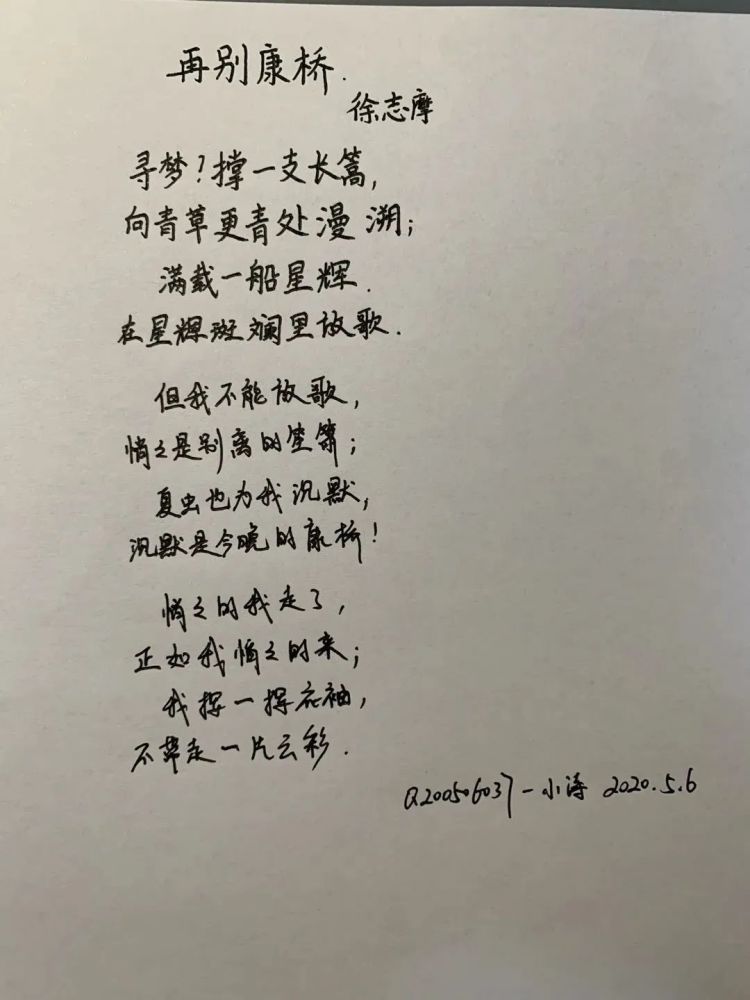 再别康桥.
徐志摩
寻梦?撑一支长篙,
向青草更青处漫溯;
满载一船星辉.
在星辉斑斓里放歌.
但我不能放歌,
悄々是别离的笙箫;
夏虫也为我沉默,
沉默是今晚的康桥!
悄々的我走了,
正如我悄々的来;
我挥一挥衣袖,
不带走一片云彩.
Q200506037-小涛 2020.5.6